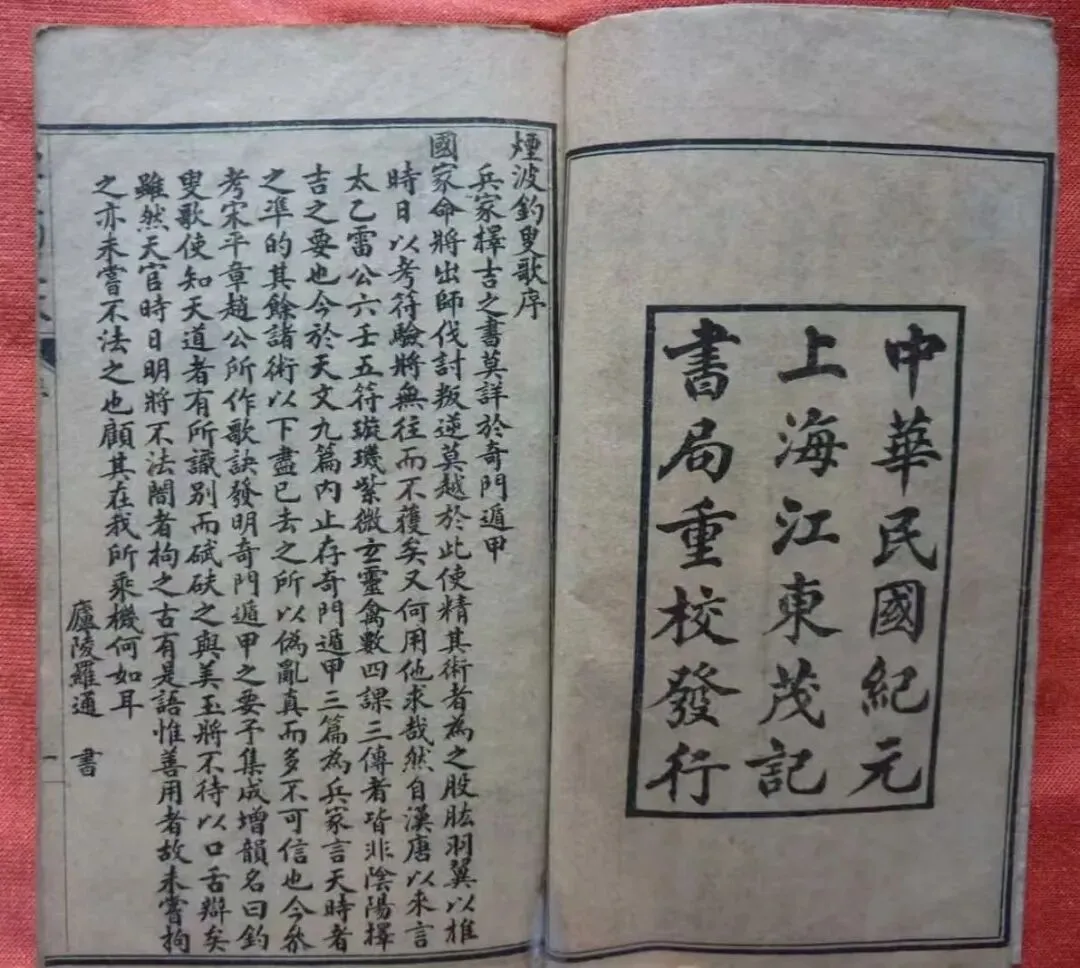 中華民國紀元
上海江東茂記
書局重校發行
煙波釣叟歌序
兵家擇吉之書莫詳於奇門遁甲
國家命將出師伐討叛逆莫越於此使精其術者為之股肱羽翼以推
時日以考符驗將無往而不獲矣又何用他求哉然自漢唐以來言
太乙雷公六壬五符璇璣紫微玄靈禽數四課三傳者皆非陰陽擇
吉之要也今於天文九篇內止存奇門遁甲三篇為兵家言天時者
之準的其餘諸術以下盡已去之所以偽亂真而多不可信也今叅
考宋平章趙公所作歌訣發明奇門遁甲之要予集成增韻名曰釣
叟歌使知天道者有所識別而碔砆之與美玉將不待以口舌辯矣
雖然天官時日明將不法闇者拘之古有是語惟善用者故未嘗拘
之亦未嘗不法之也顧其在我所乘機何如耳
廬陵羅通 書